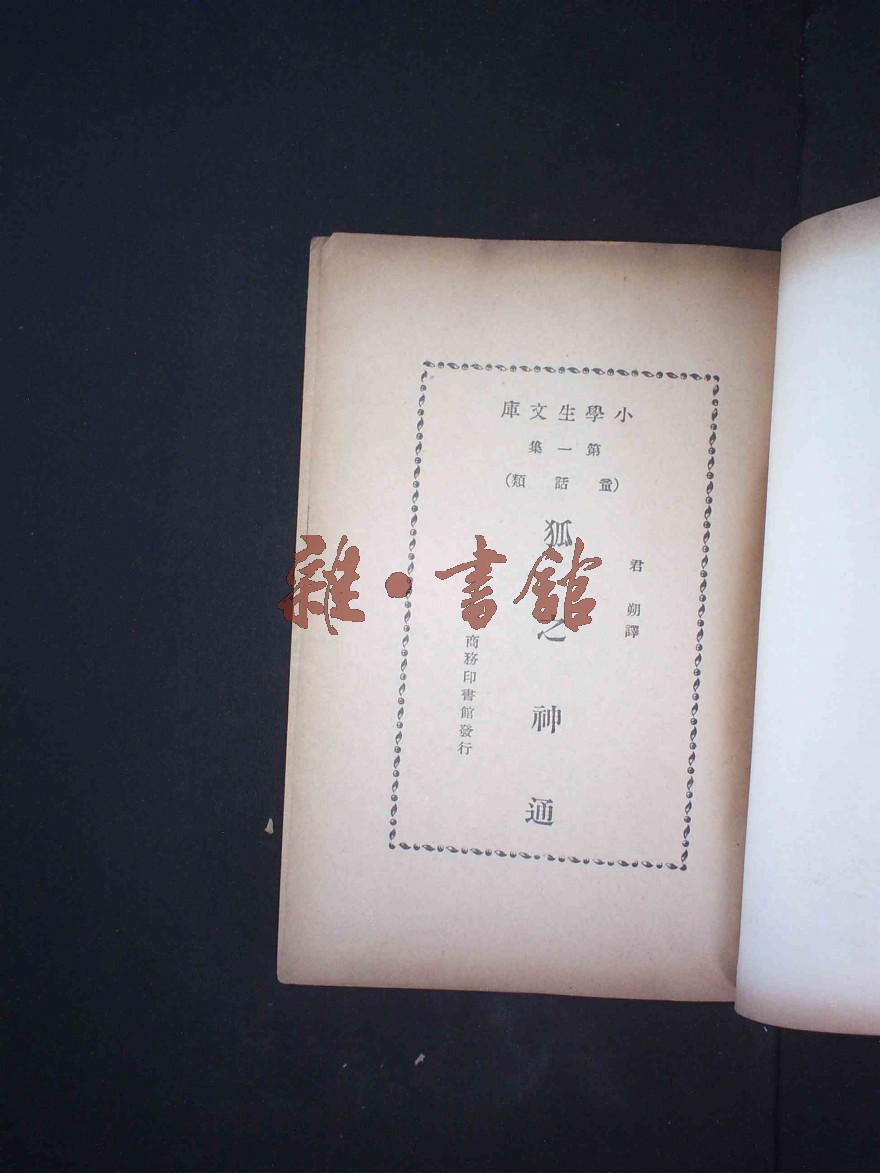 小學生文庫
第一集
(童話類)
君朔譯
狐之神通
商務印書館發行
雜·書館